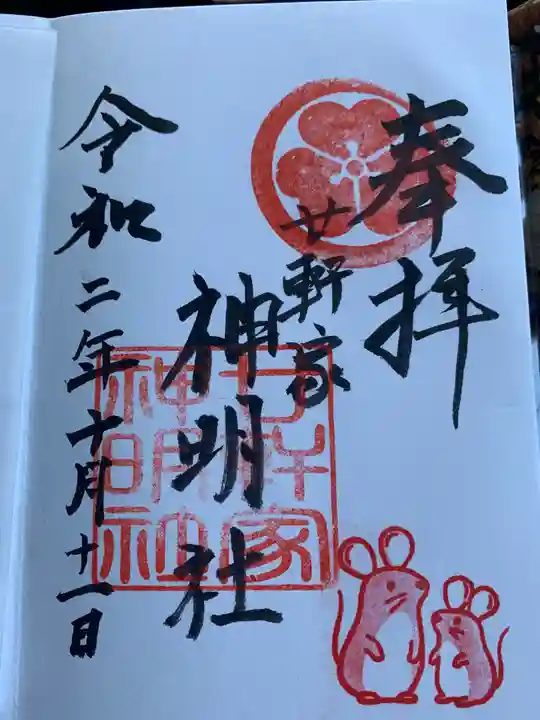 奉拝
廿軒家
神明社
廿軒家
神明社
令和二年十月十一日